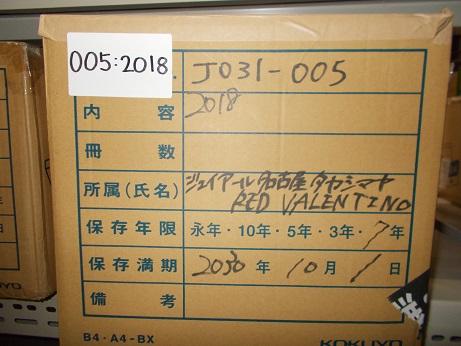 005:2018
. J031-005
内容 2018
冊数
所属(氏名) ジェイアール名古屋タカシマヤ
RED VALENTINO
保存年限 永年・10年・5年・3年・7年
保存満期 2030年10月1日
備考
B4・A4-BX
KOKUYO